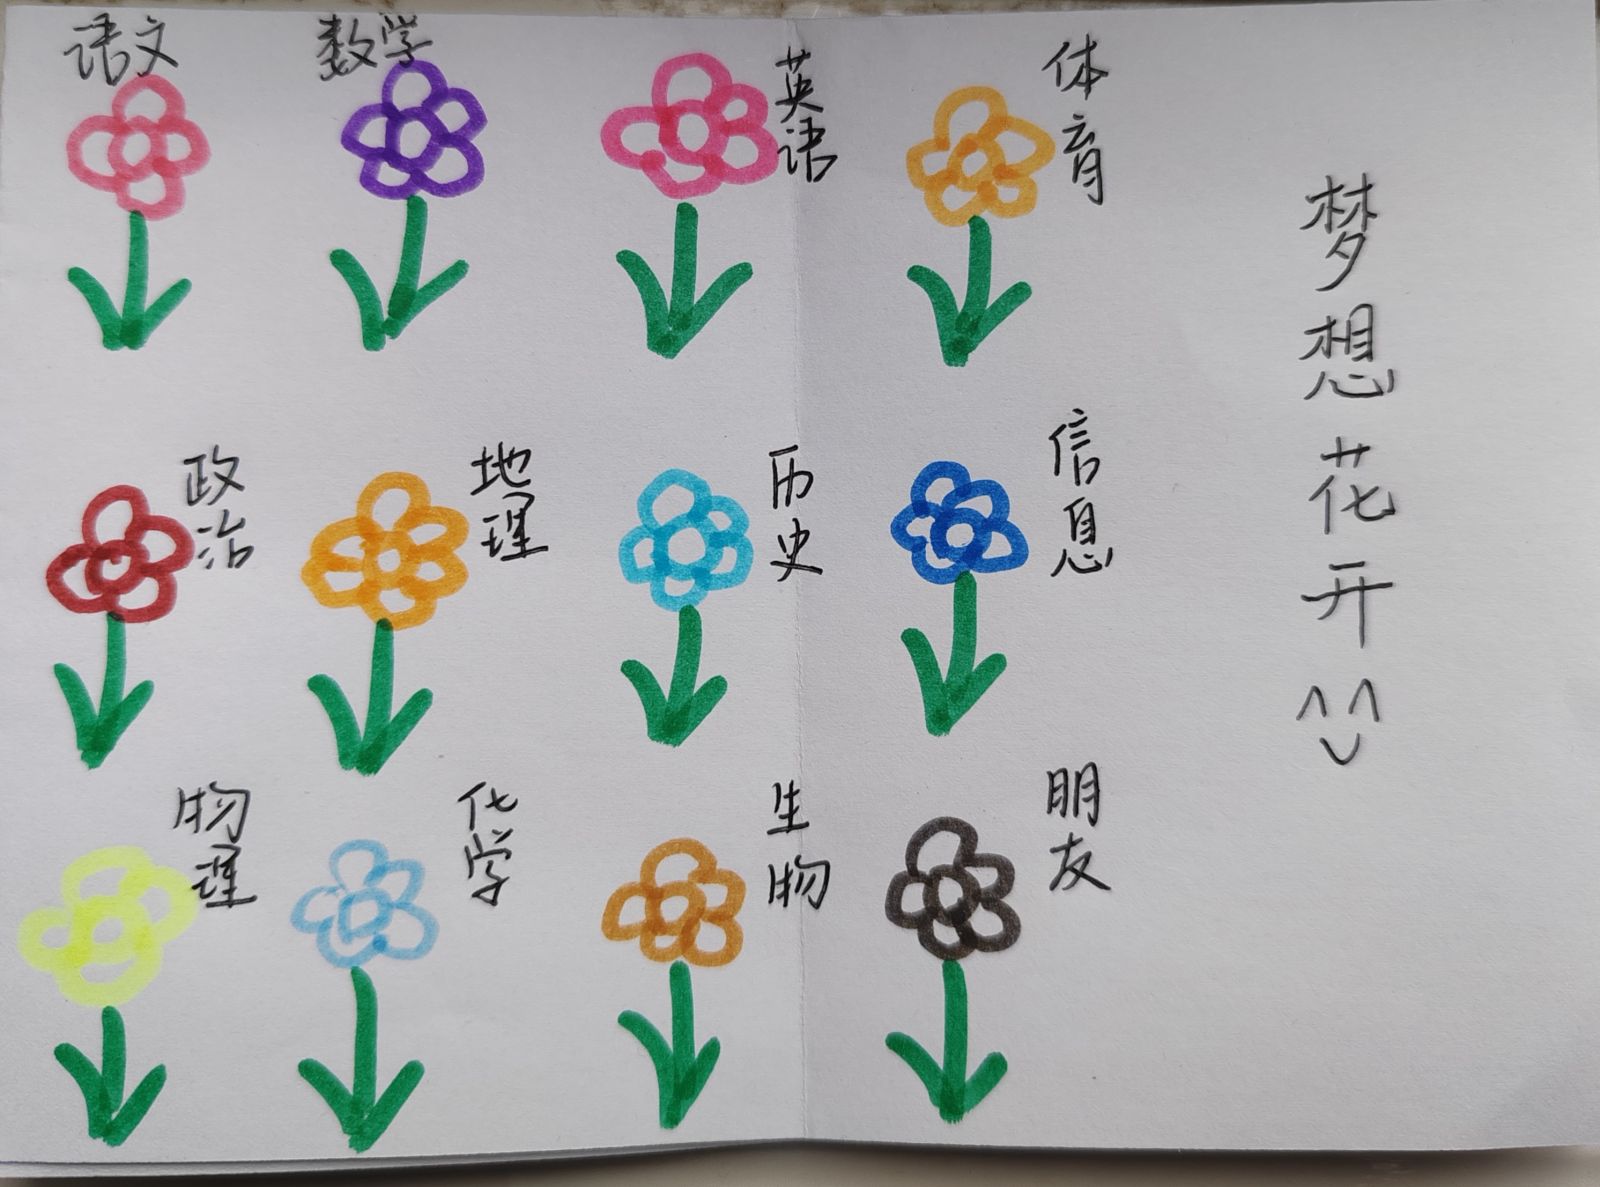 语文
数学
英语
体育
政治
地理
历史
信息
物理
化学
生物
朋友
梦想花开